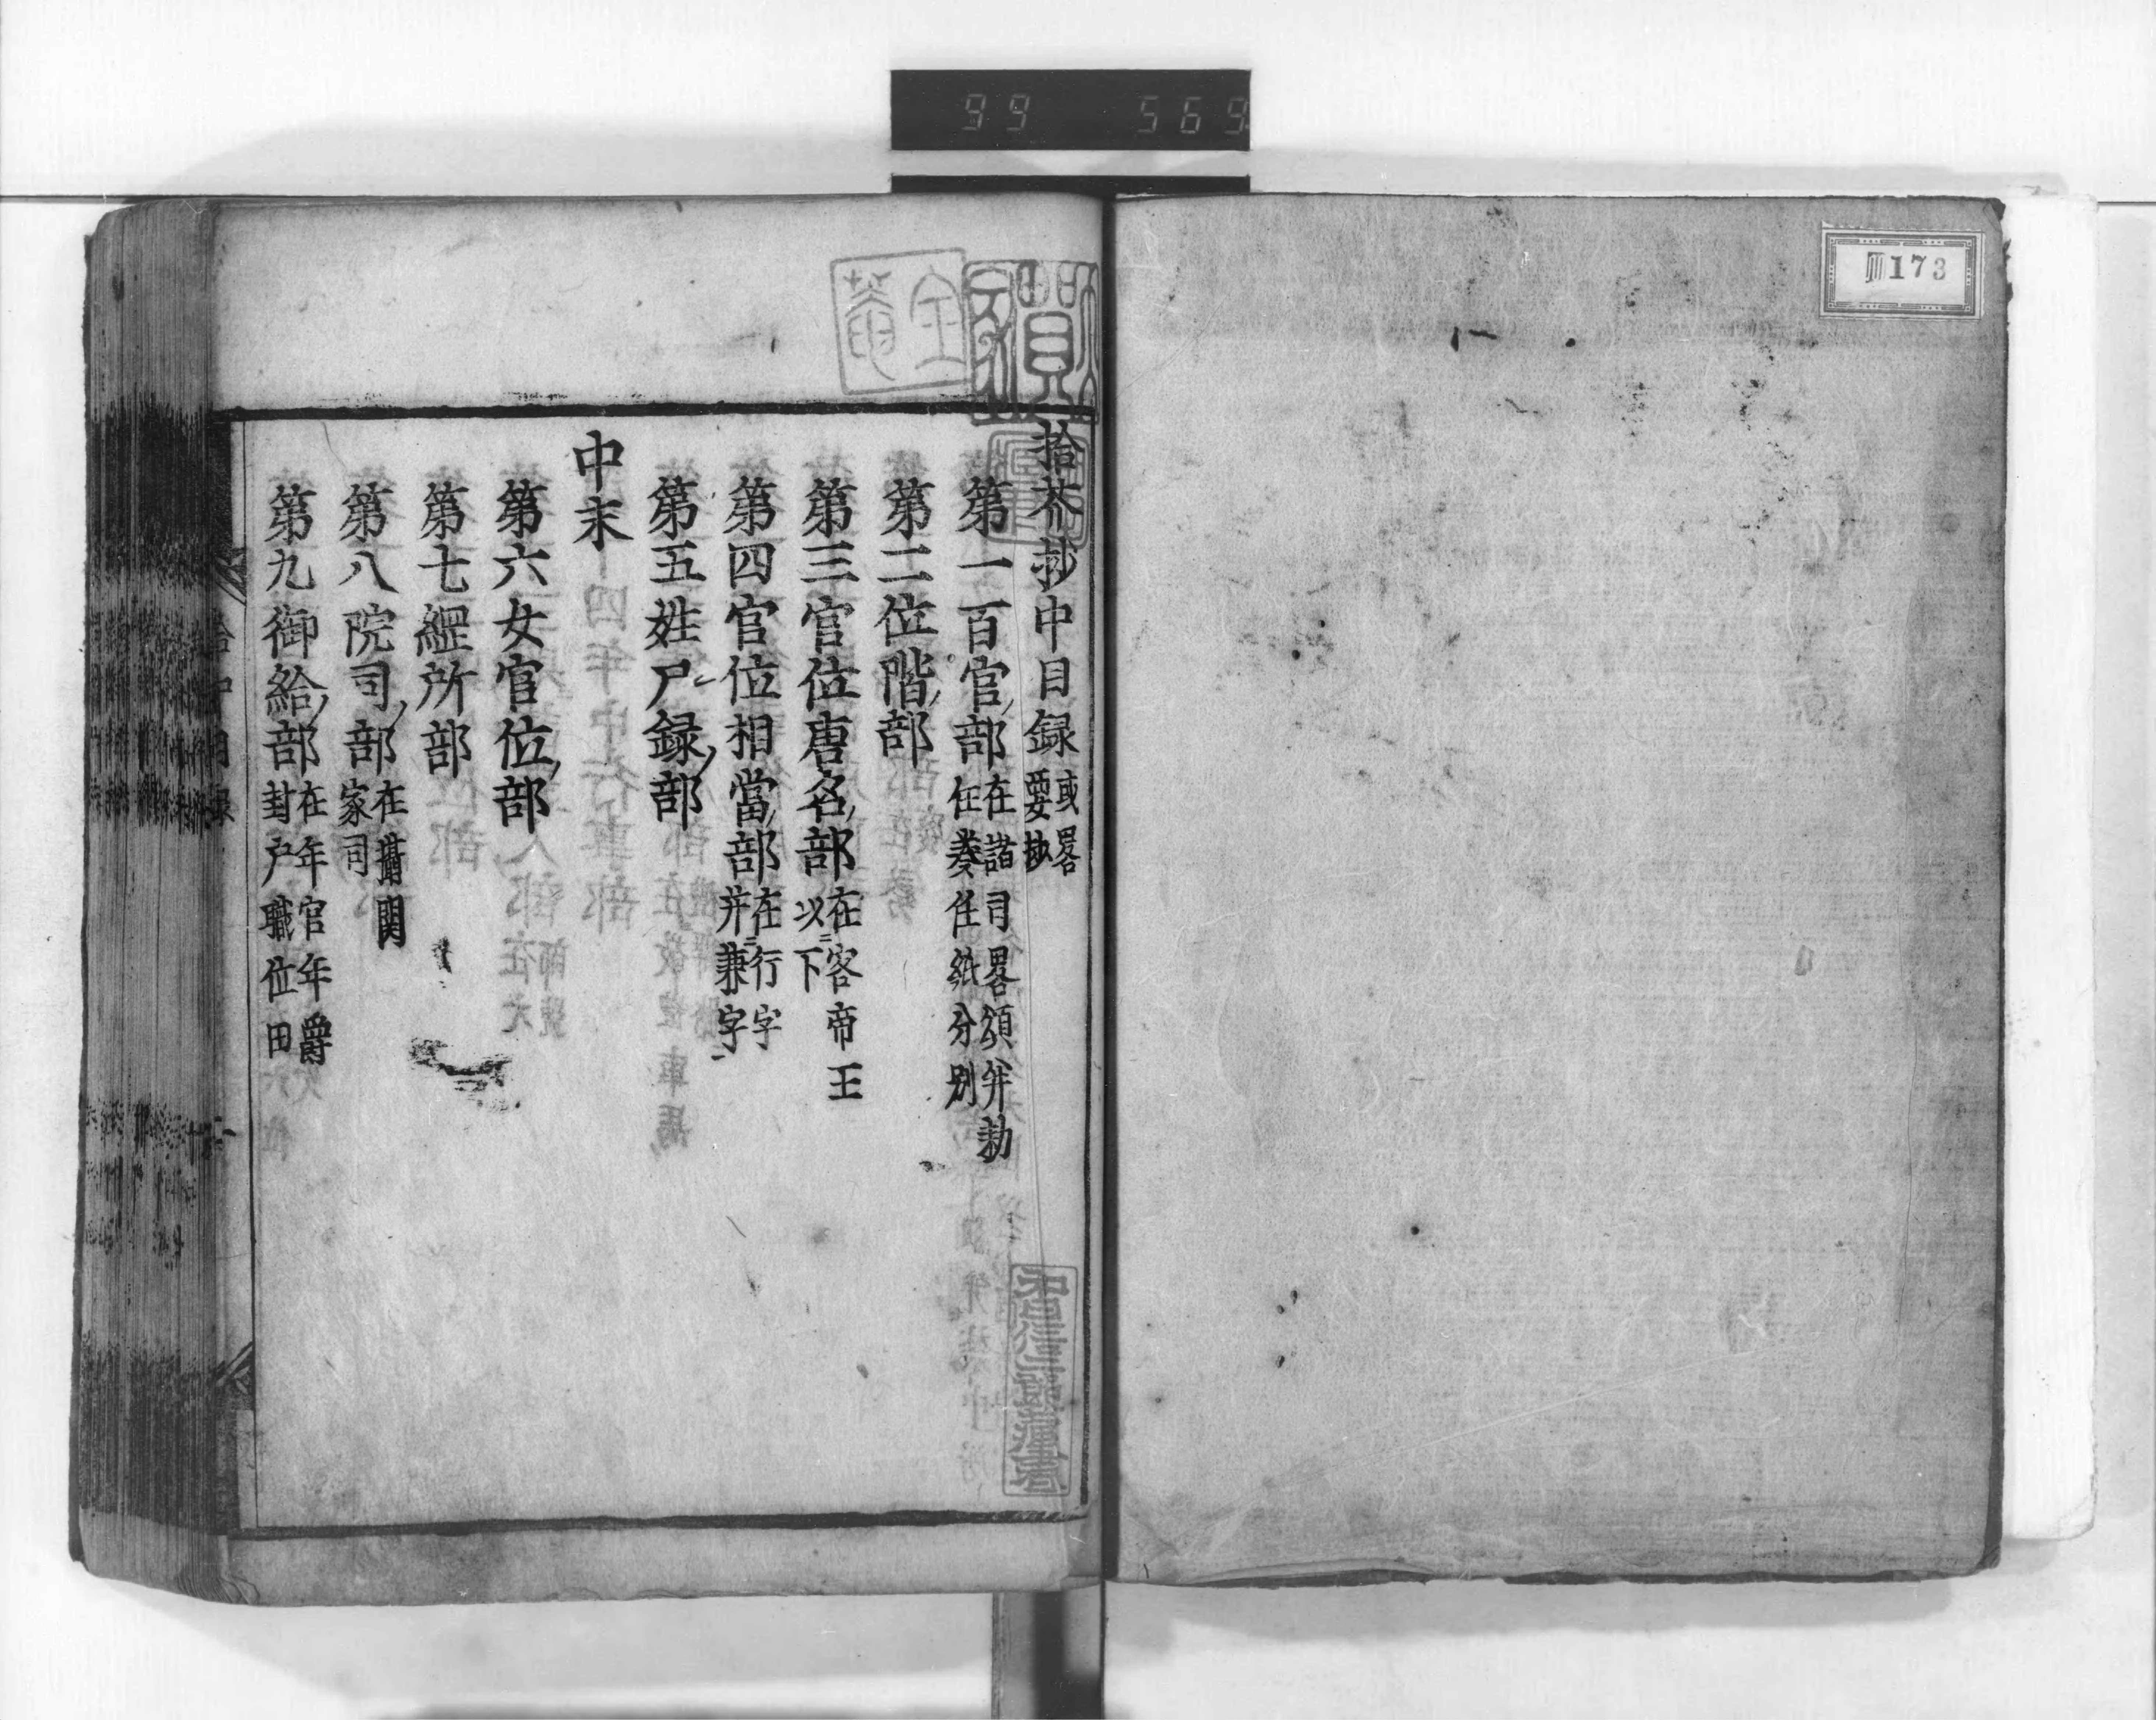 99 569
173
拾芥抄中目録 或畧要抄
第一百官部 在諸司畧頒并勅任奏任紙分別
第二位階部
第三官位唐名部 在客帝王以下
第四官位相當部 在行字并兼字
第五姓尸録部
中末
第六女官位部
第七經所部
第八院司部 在攝関家司
第九御給部 在年官年爵封戸職位田